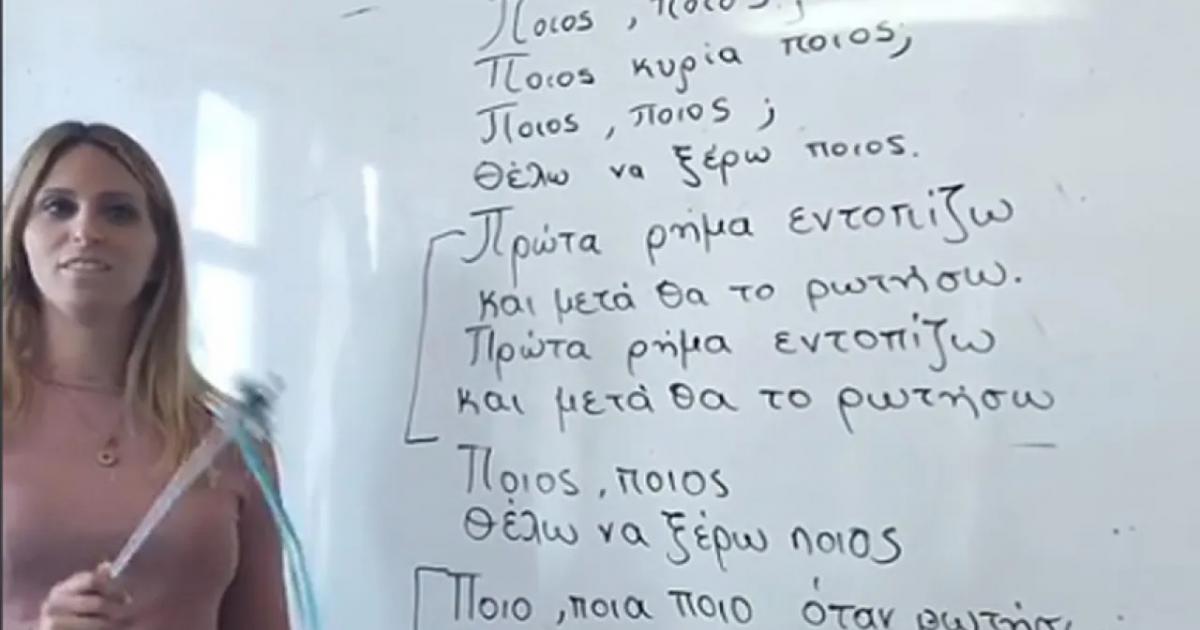 Ποιος, ποιος;
Ποιος κυρία ποιος;
Ποιος, ποιος;
Θέλω να ξέρω ποιος.
Πρώτα ρήμα εντοπίζω
και μετά θα το ρωτήσω.
Πρώτα ρήμα εντοπίζω
και μετά θα το ρωτήσω
Ποιος, ποιος
Θέλω να ξέρω ποιος
Ποιο, ποια ποιο όταν